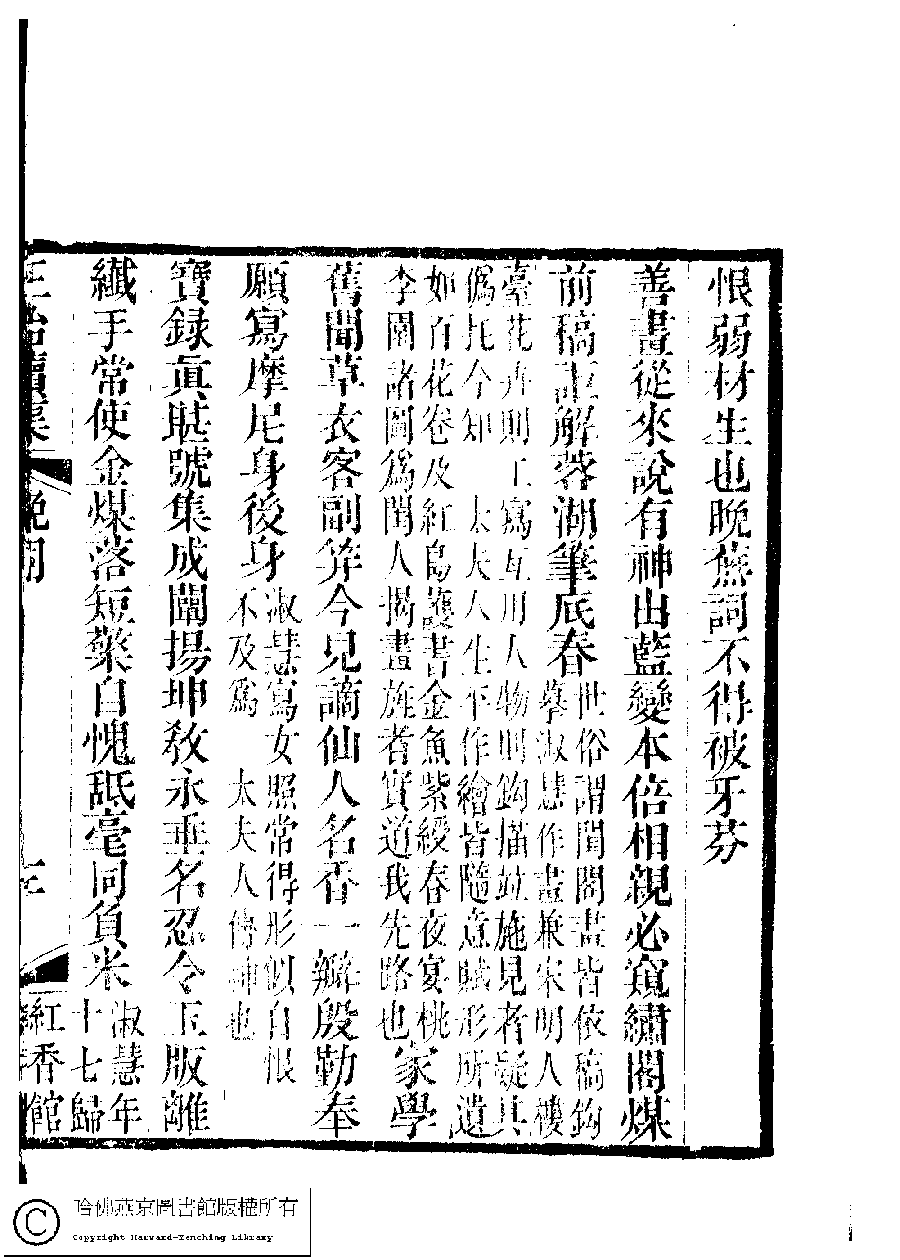 恨弱材生也晚蕪詞不得被牙芬
善畫從來說有神出藍變本倍相親必窺繡閣煤
前稿詎解蓉湖筆底春
世俗謂閨閣畫皆依稿鈎
摹淑慧作畫兼宋明人樓
臺花卉則工寫互用人物則鈎描竝施見者疑其
僞托今知 太夫人生平作繪皆隨意賦形所遺
如百花卷及紅鳥護書金魚紫綬春夜宴桃
李園諸圖爲閨人揭畫旌者實道我先路也
家學
舊聞草衣客副笄今見謫仙人名香一瓣殷勤奉
願寫摩尼身後身
淑慧寫女照常得形似自恨
不及爲 太夫人傳神也
寶録眞堪號集成闡揚坤敎永垂名忍令玉版離
纖手常使金煤落短檠自愧舐毫同負米
淑慧年
十七歸
續集 晚 三
紅香館
哈佛燕京圖書館版權所有
Copyright Harvard-Yenching Library